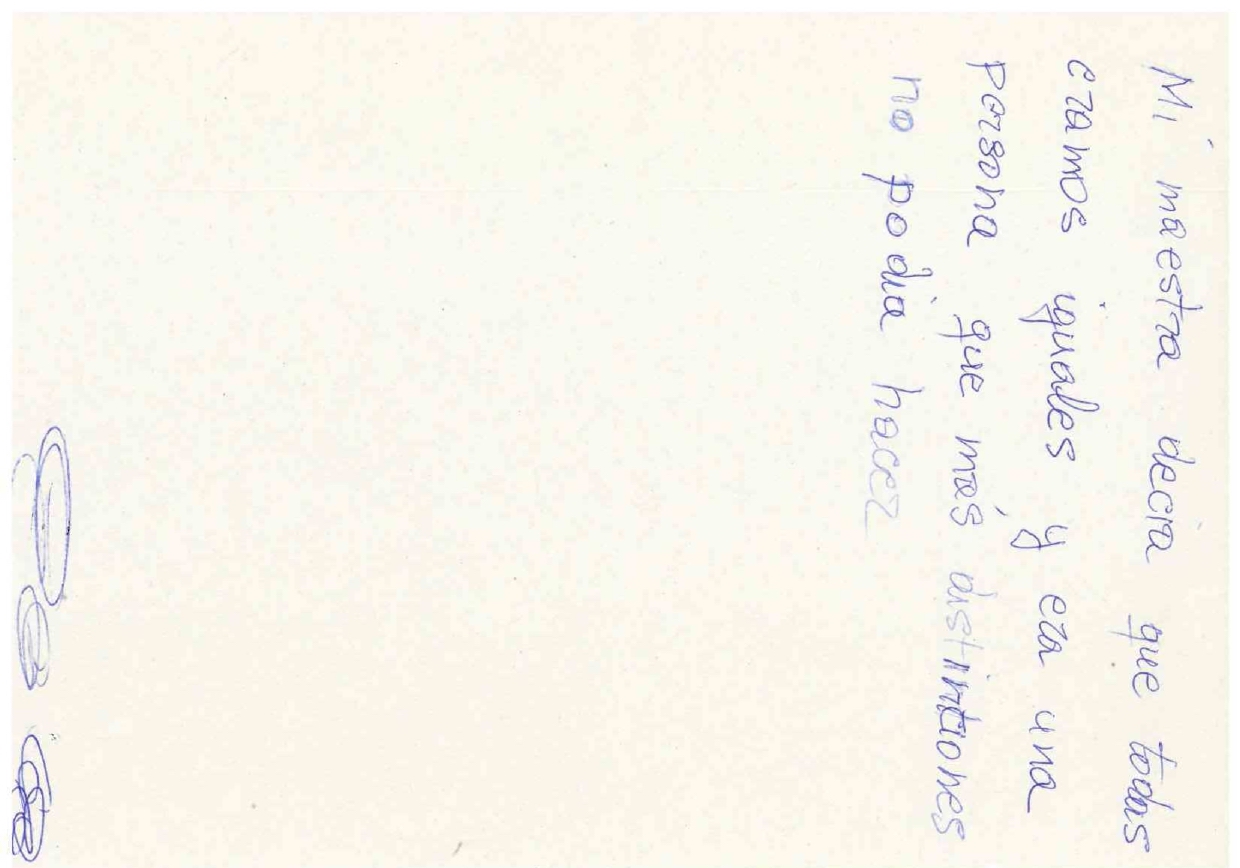 Mi maestra decia que todas
eramos iguales y era una
persona que más distintiones
no podia hacer